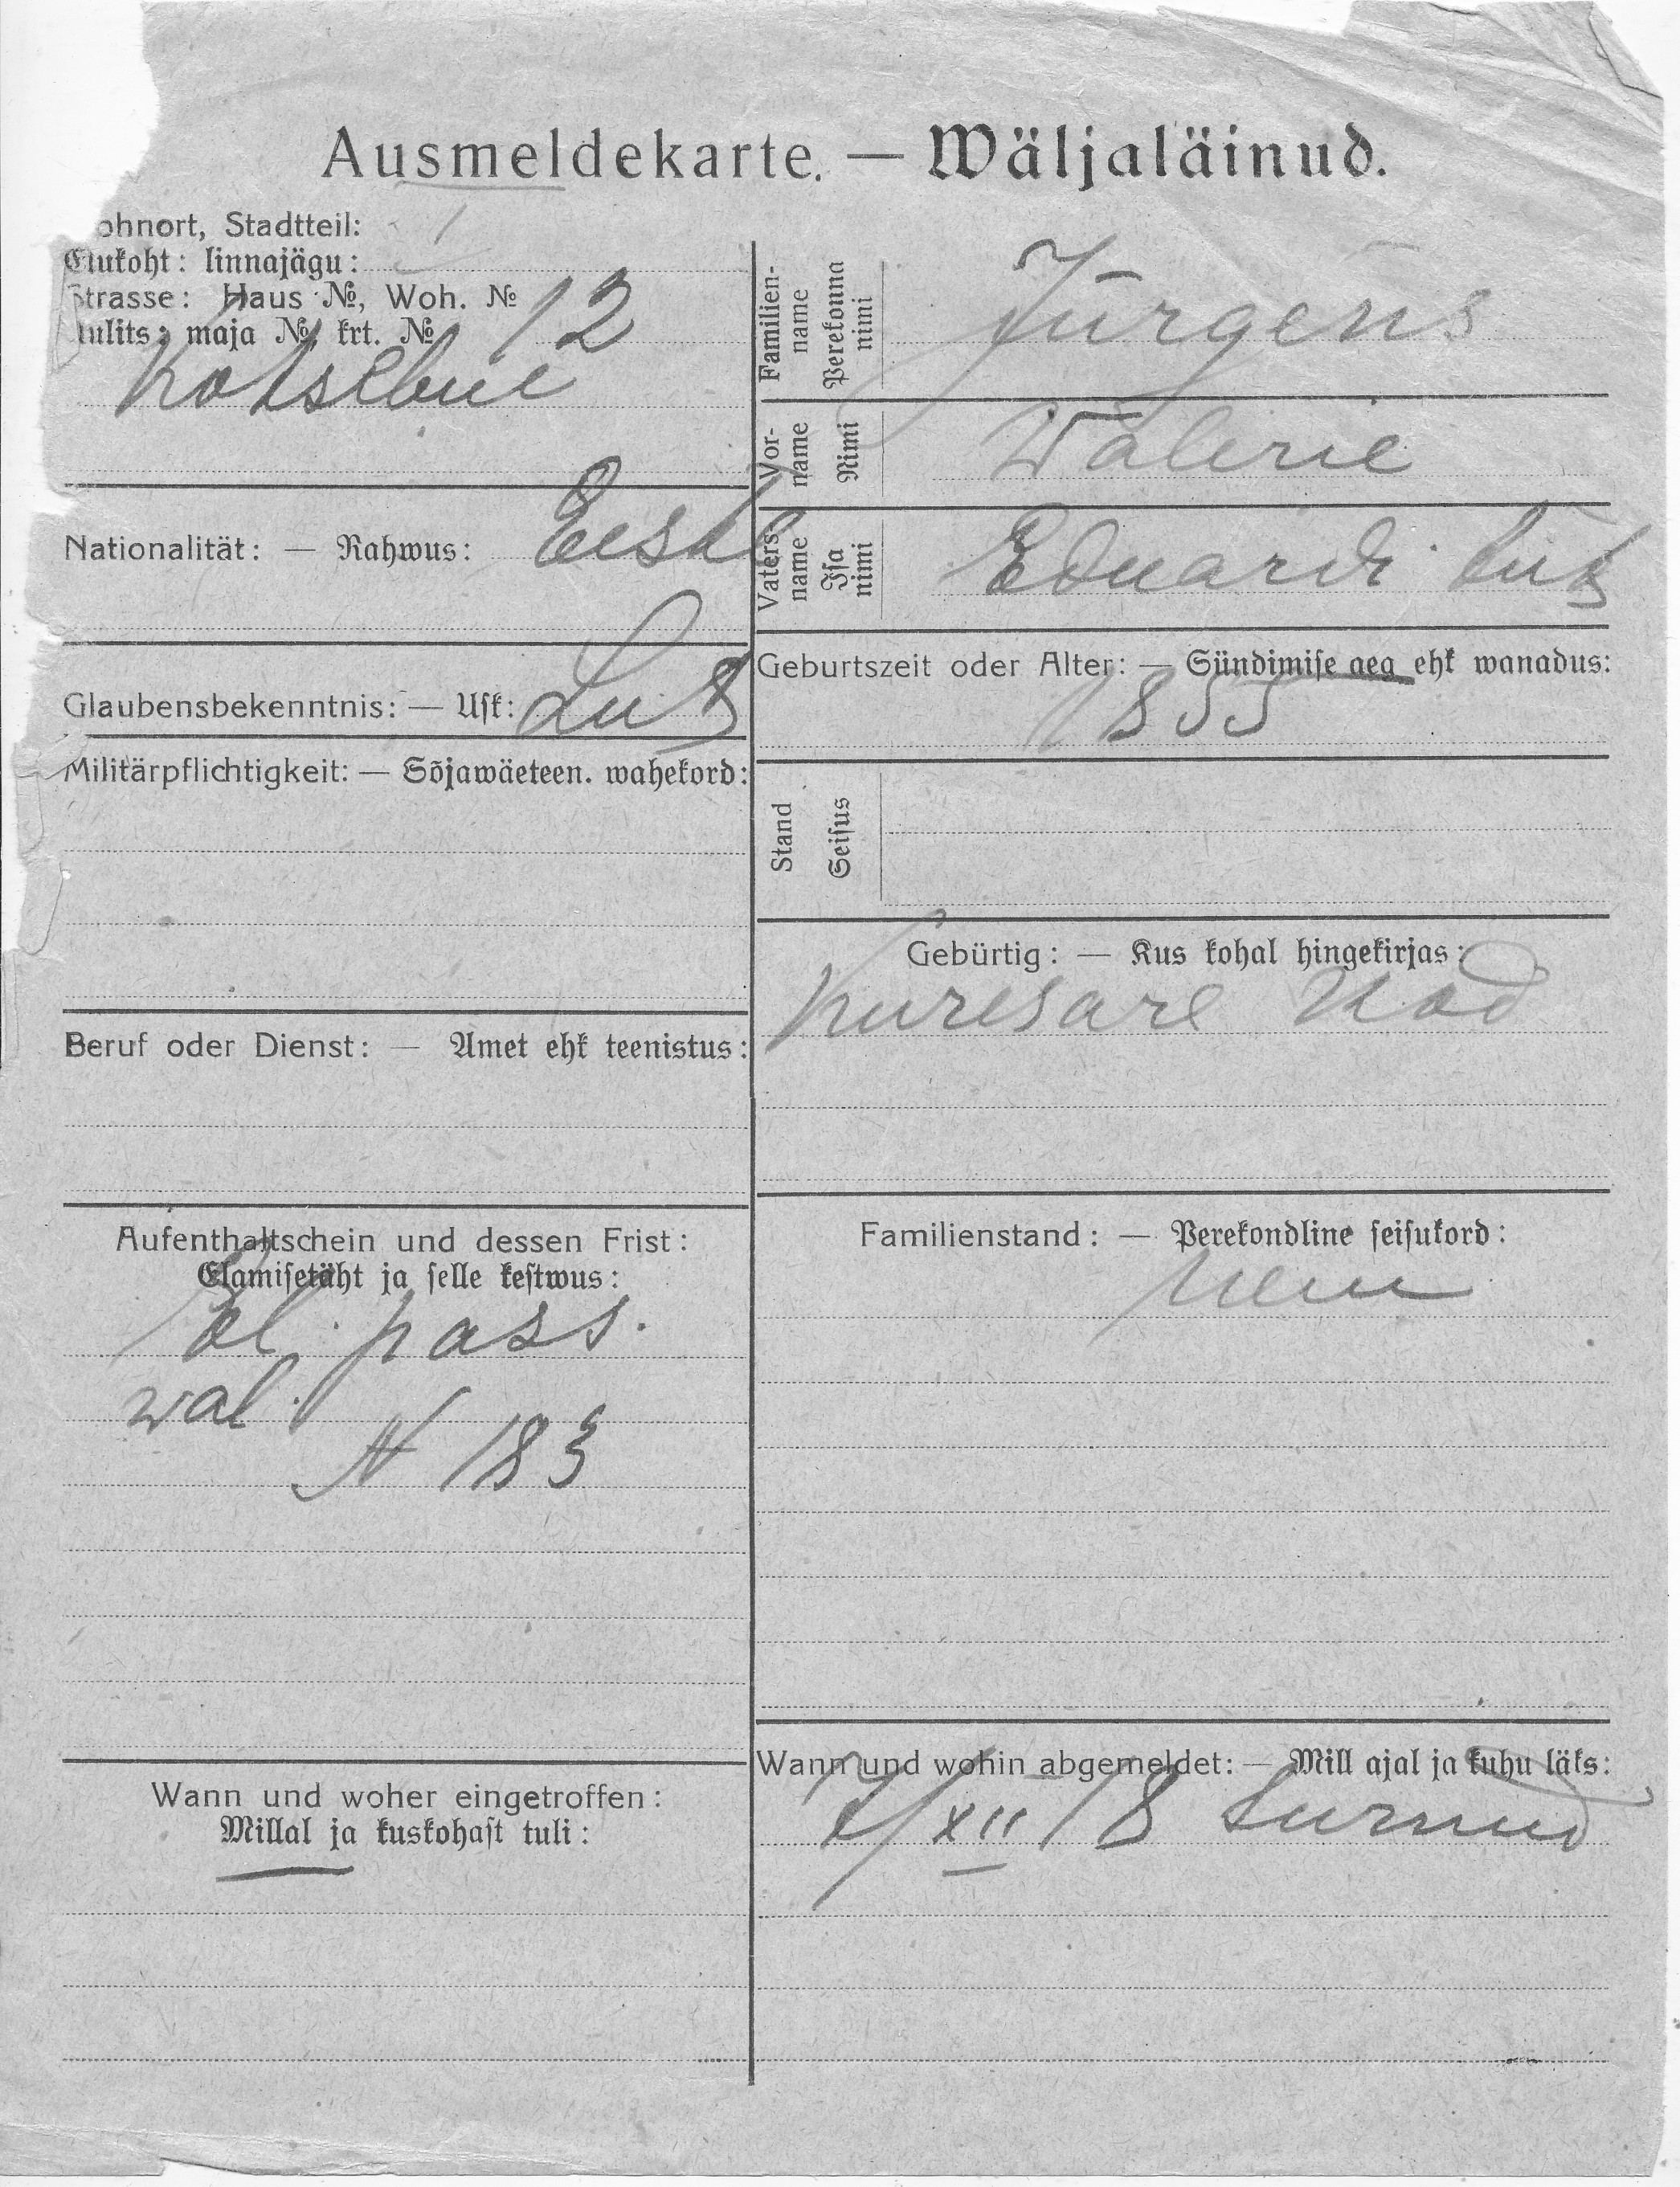 Ausmeldekarte. — Wäljaläinud.
ohnort, Stadtteil: I
Elukoht: linnajägu:
Strasse: Haus №, Woh. № 12
Uulits: maja № krt. №
Kotsebue
Nationalität: — Rahwus: Eesti
Glaubensbekenntnis: — Usk: Lut
Militärpflichtigkeit: — Sõjawäeteen. wahekord:
Beruf oder Dienst: — Amet ehk teenistus:
Aufenthaltschein und dessen Frist:
Elamisetäht ja selle kestwus:
El. pass.
wal.
N 183
Wann und woher eingetroffen:
Millal ja kuskohast tuli:
Familien-
name
Perekonna
nimi
Jürgens
Vor-
name
Nimi
Walerie
Vaters
name
Isa
nimi
Eduardi
Geburtszeit oder Alter: — Sündimise aeg ehk wanadus:
1855
Stand
Seisus
Gebürtig: — Kus kohal hingekirjas:
Kuresare
Familienstand: — Perekondline seisukord:
Wann und wohin abgemeldet: — Mill ajal ja kuhu läks:
7/XII 18 Surnud